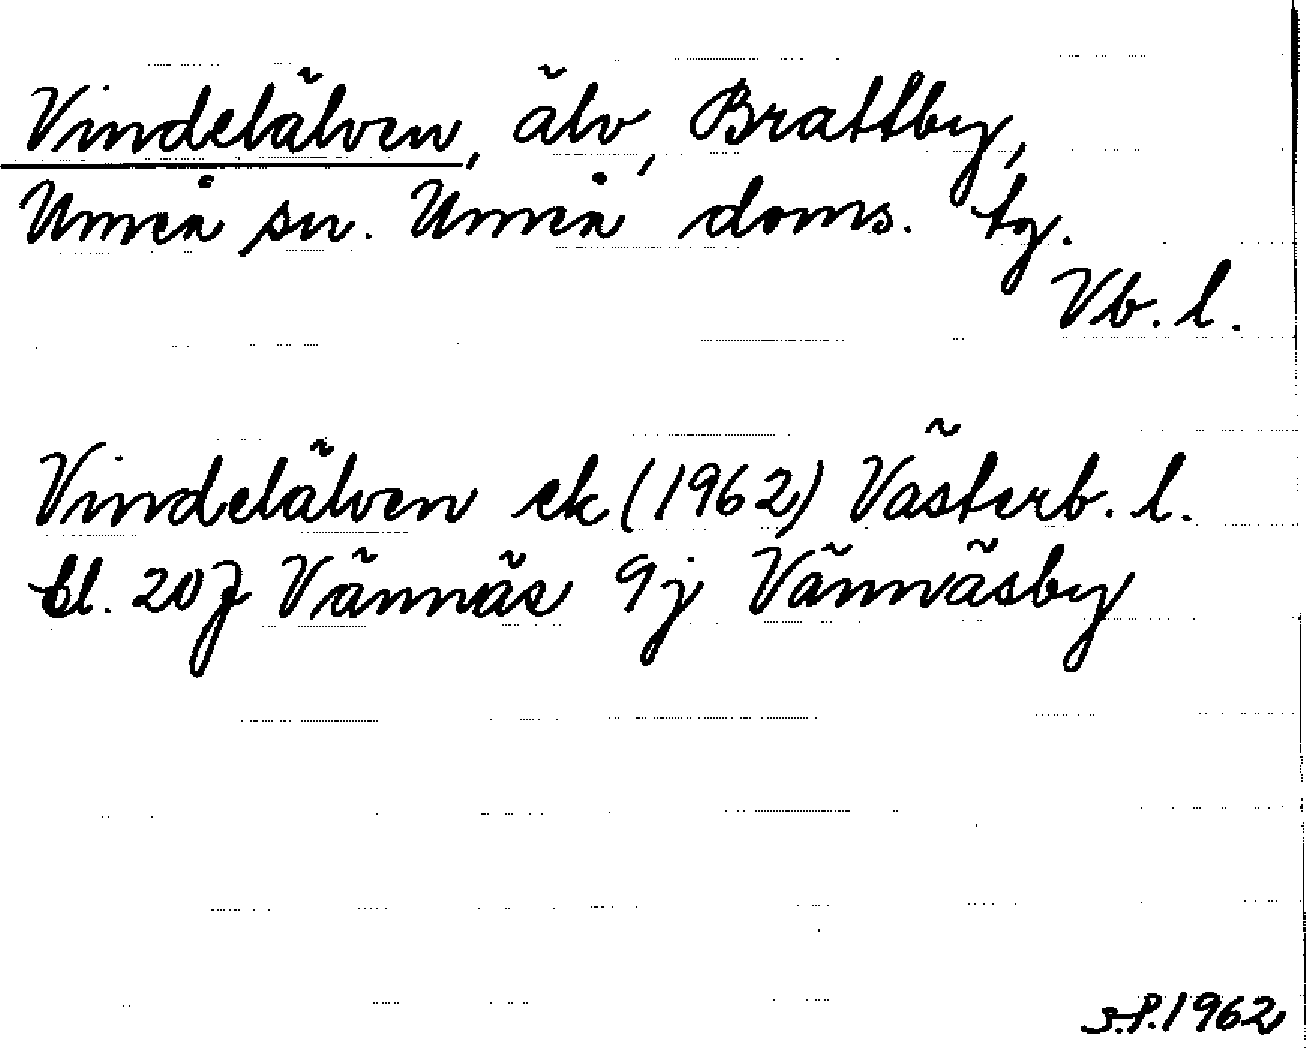 Vindelälven, älv, Brattby,
Umeå sn. Umeå doms. tg.
Vb. l.
Vindelälven ek (1962) Västerb. l.
bl. 20J Vännäs 9j Vännäsby
S.P. 1962